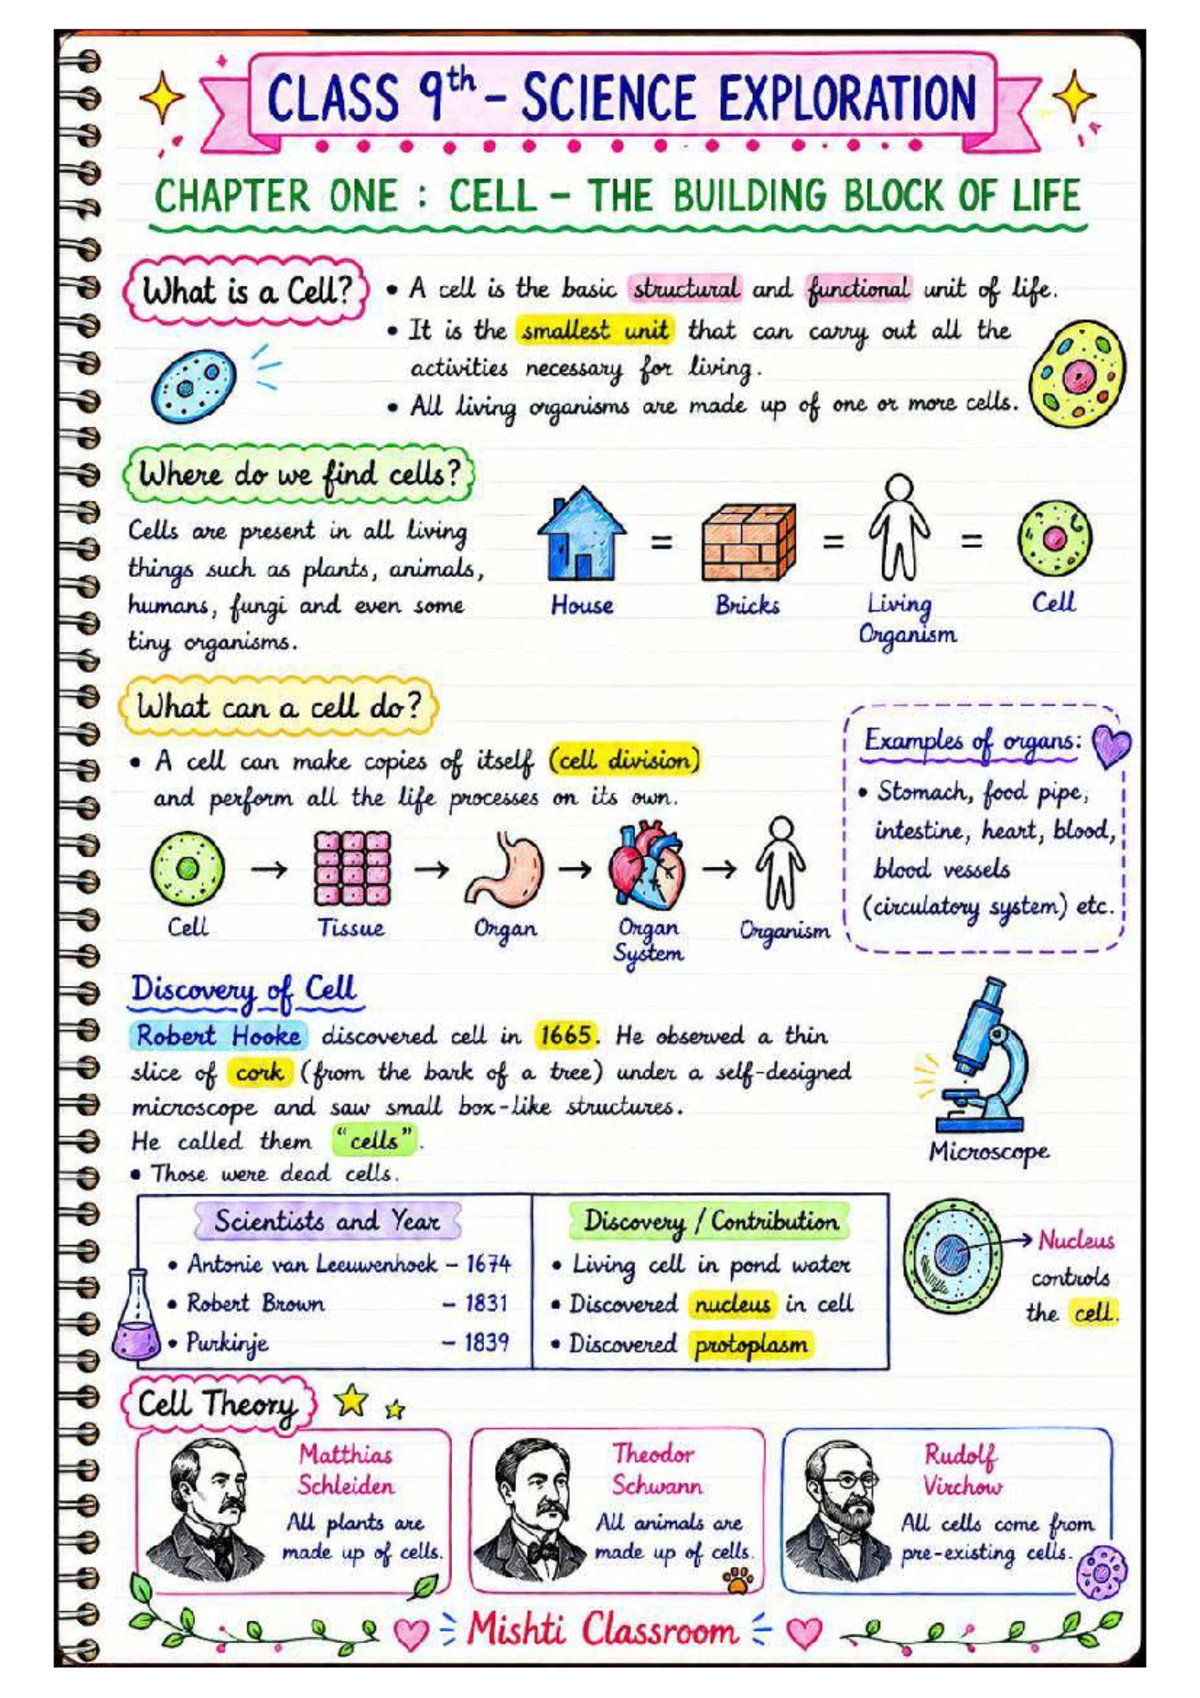 CLASS 9th - SCIENCE EXPLORATION
CHAPTER ONE : CELL - THE BUILDING BLOCK OF LIFE
What is a Cell?
• A cell is the basic structural and functional unit of life.
• It is the smallest unit that can carry out all the
activities necessary for living.
• All living organisms are made up of one or more cells.
Where do we find cells?
Cells are present in all living
things such as plants, animals,
humans, fungi and even some
tiny organisms.
House = Bricks = Living Organism = Cell
What can a cell do?
• A cell can make copies of itself (cell division)
and perform all the life processes on its own.
Cell → Tissue → Organ → Organ System → Organism
Examples of organs:
• Stomach, food pipe,
intestine, heart, blood,
blood vessels
(circulatory system) etc.
Discovery of Cell
Robert Hooke discovered cell in 1665. He observed a thin
slice of cork (from the bark of a tree) under a self-designed
microscope and saw small box-like structures.
He called them "cells".
• Those were dead cells.
Microscope
Scientists and Year
Discovery / Contribution
• Antonie van Leeuwenhoek - 1674
• Living cell in pond water
• Robert Brown - 1831
• Discovered nucleus in cell
• Purkinje - 1839
• Discovered protoplasm
Nucleus
controls
the cell.
Cell Theory
Matthias
Schleiden
All plants are
made up of cells.
Theodor
Schwann
All animals are
made up of cells.
Rudolf
Virchow
All cells come from
pre-existing cells.
Mishti Classroom